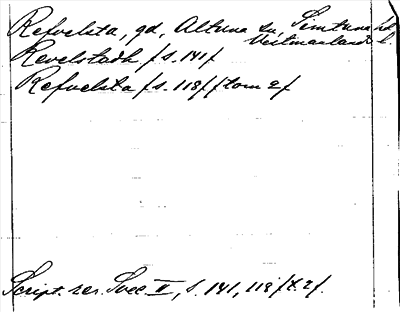 Refvelsta, gd, Altuna sn, Simtuna hd
Vestmanlands l.
Revelstadh /s. 141/
Refvelsta /s. 118/ /tom 2/
Script. rer. Svec. II, s. 141, 118 /t. 2/.